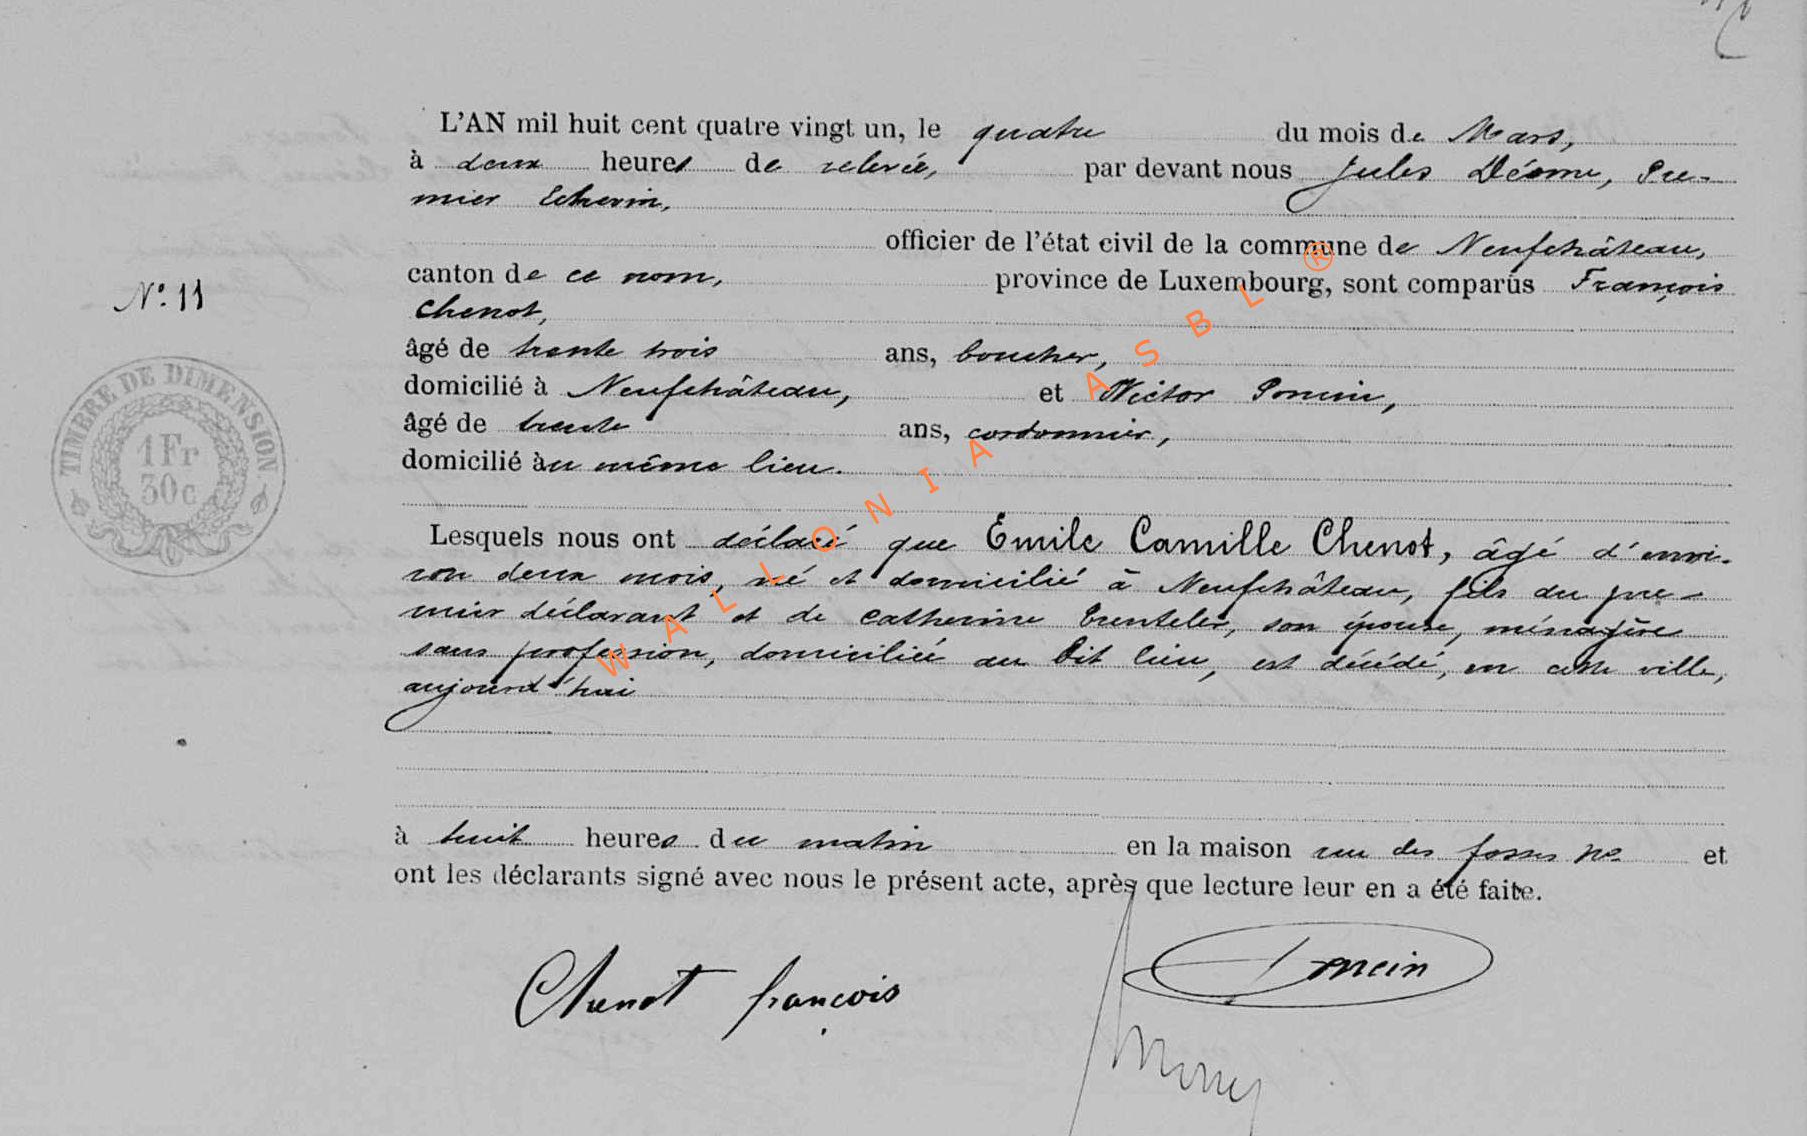 L'AN mil huit cent quatre vingt un, le quatre du mois de Mars,
à deux heures de relevée, par devant nous Jules Déome, Pre-
mier Echevin,
officier de l'état civil de la commune de Neufchâteau,
canton de ce nom, province de Luxembourg, sont comparus François
Chenot,
âgé de trente trois ans, boucher,
domicilié à Neufchâteau, et Victor Poncin,
âgé de trente ans, cordonnier,
domicilié au même lieu.
Lesquels nous ont déclaré que Emile Camille Chenot, âgé d'envi-
ron deux mois, né et domicilié à Neufchâteau, fils du pre-
mier déclarant et de Catherine Trenteler, son épouse, ménagère
sans profession, domiciliée au dit lieu, est décédé, en cette ville,
aujourd'hui
à huit heures du matin en la maison rue des fosses no et
ont les déclarants signé avec nous le présent acte, après que lecture leur en a été faite.
Chenot françois
Poncin
No. 11
TIMBRE DE DIMENSION
1 Fr
30 c
WALLONIA ASBL ®